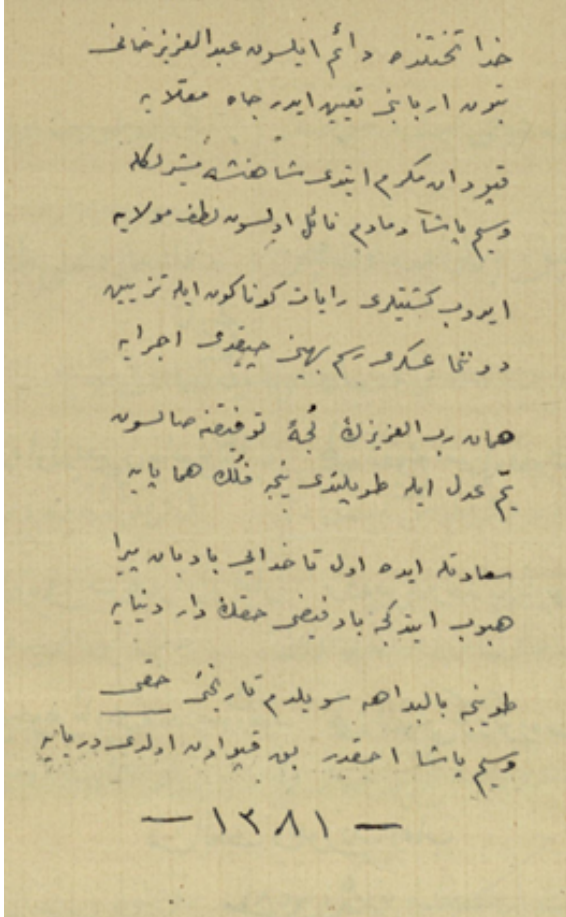 خدا تختنده دائم ایلسون عبدالعزیز خانی
بتون اربابنی تعیین ایدر جاه معلایه
قپودان مکرم ایتدی شاهنشه مشیرلکله
وسیم پاشا دمادم نائل اولسون لطف مولایه
ایدوب کشتیلری رایات کوناکون ایله تزیین
دوننما عسکری رسم بهینی چیقدی اجرایه
همان رب العزیزك لجهٔ توفیقنه صالسون
یم عدل ایله طوپلیندی نیجه فلك هما پایه
سعادتله ایده اول ناخدایی بادبان پیرا
هبوب ایتدکجه باد فیضی حقك دار دنیایه
طوینجه بالبداهه سویلدم تاریخنی حقی
وسیم پاشا احقدر بو قپودان اولدی دریایه
— ١٢٨١ —